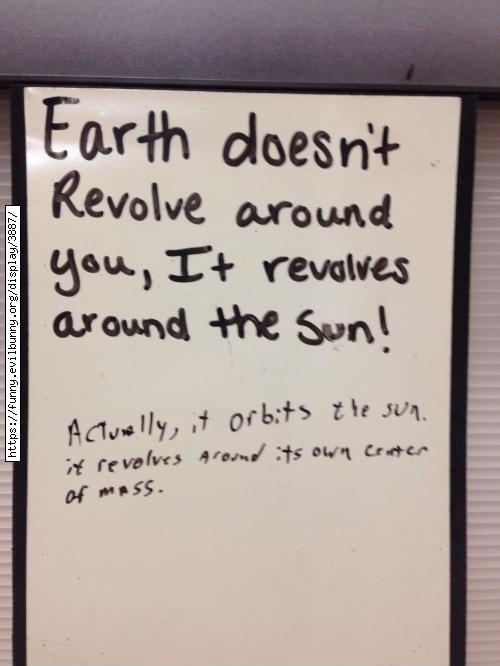 Earth doesn't
Revolve around
you, It revolves
around the Sun!
Actually, it orbits the sun.
it revolves around its own center
of mass.
https://funny.evilbunny.org/display/3887/